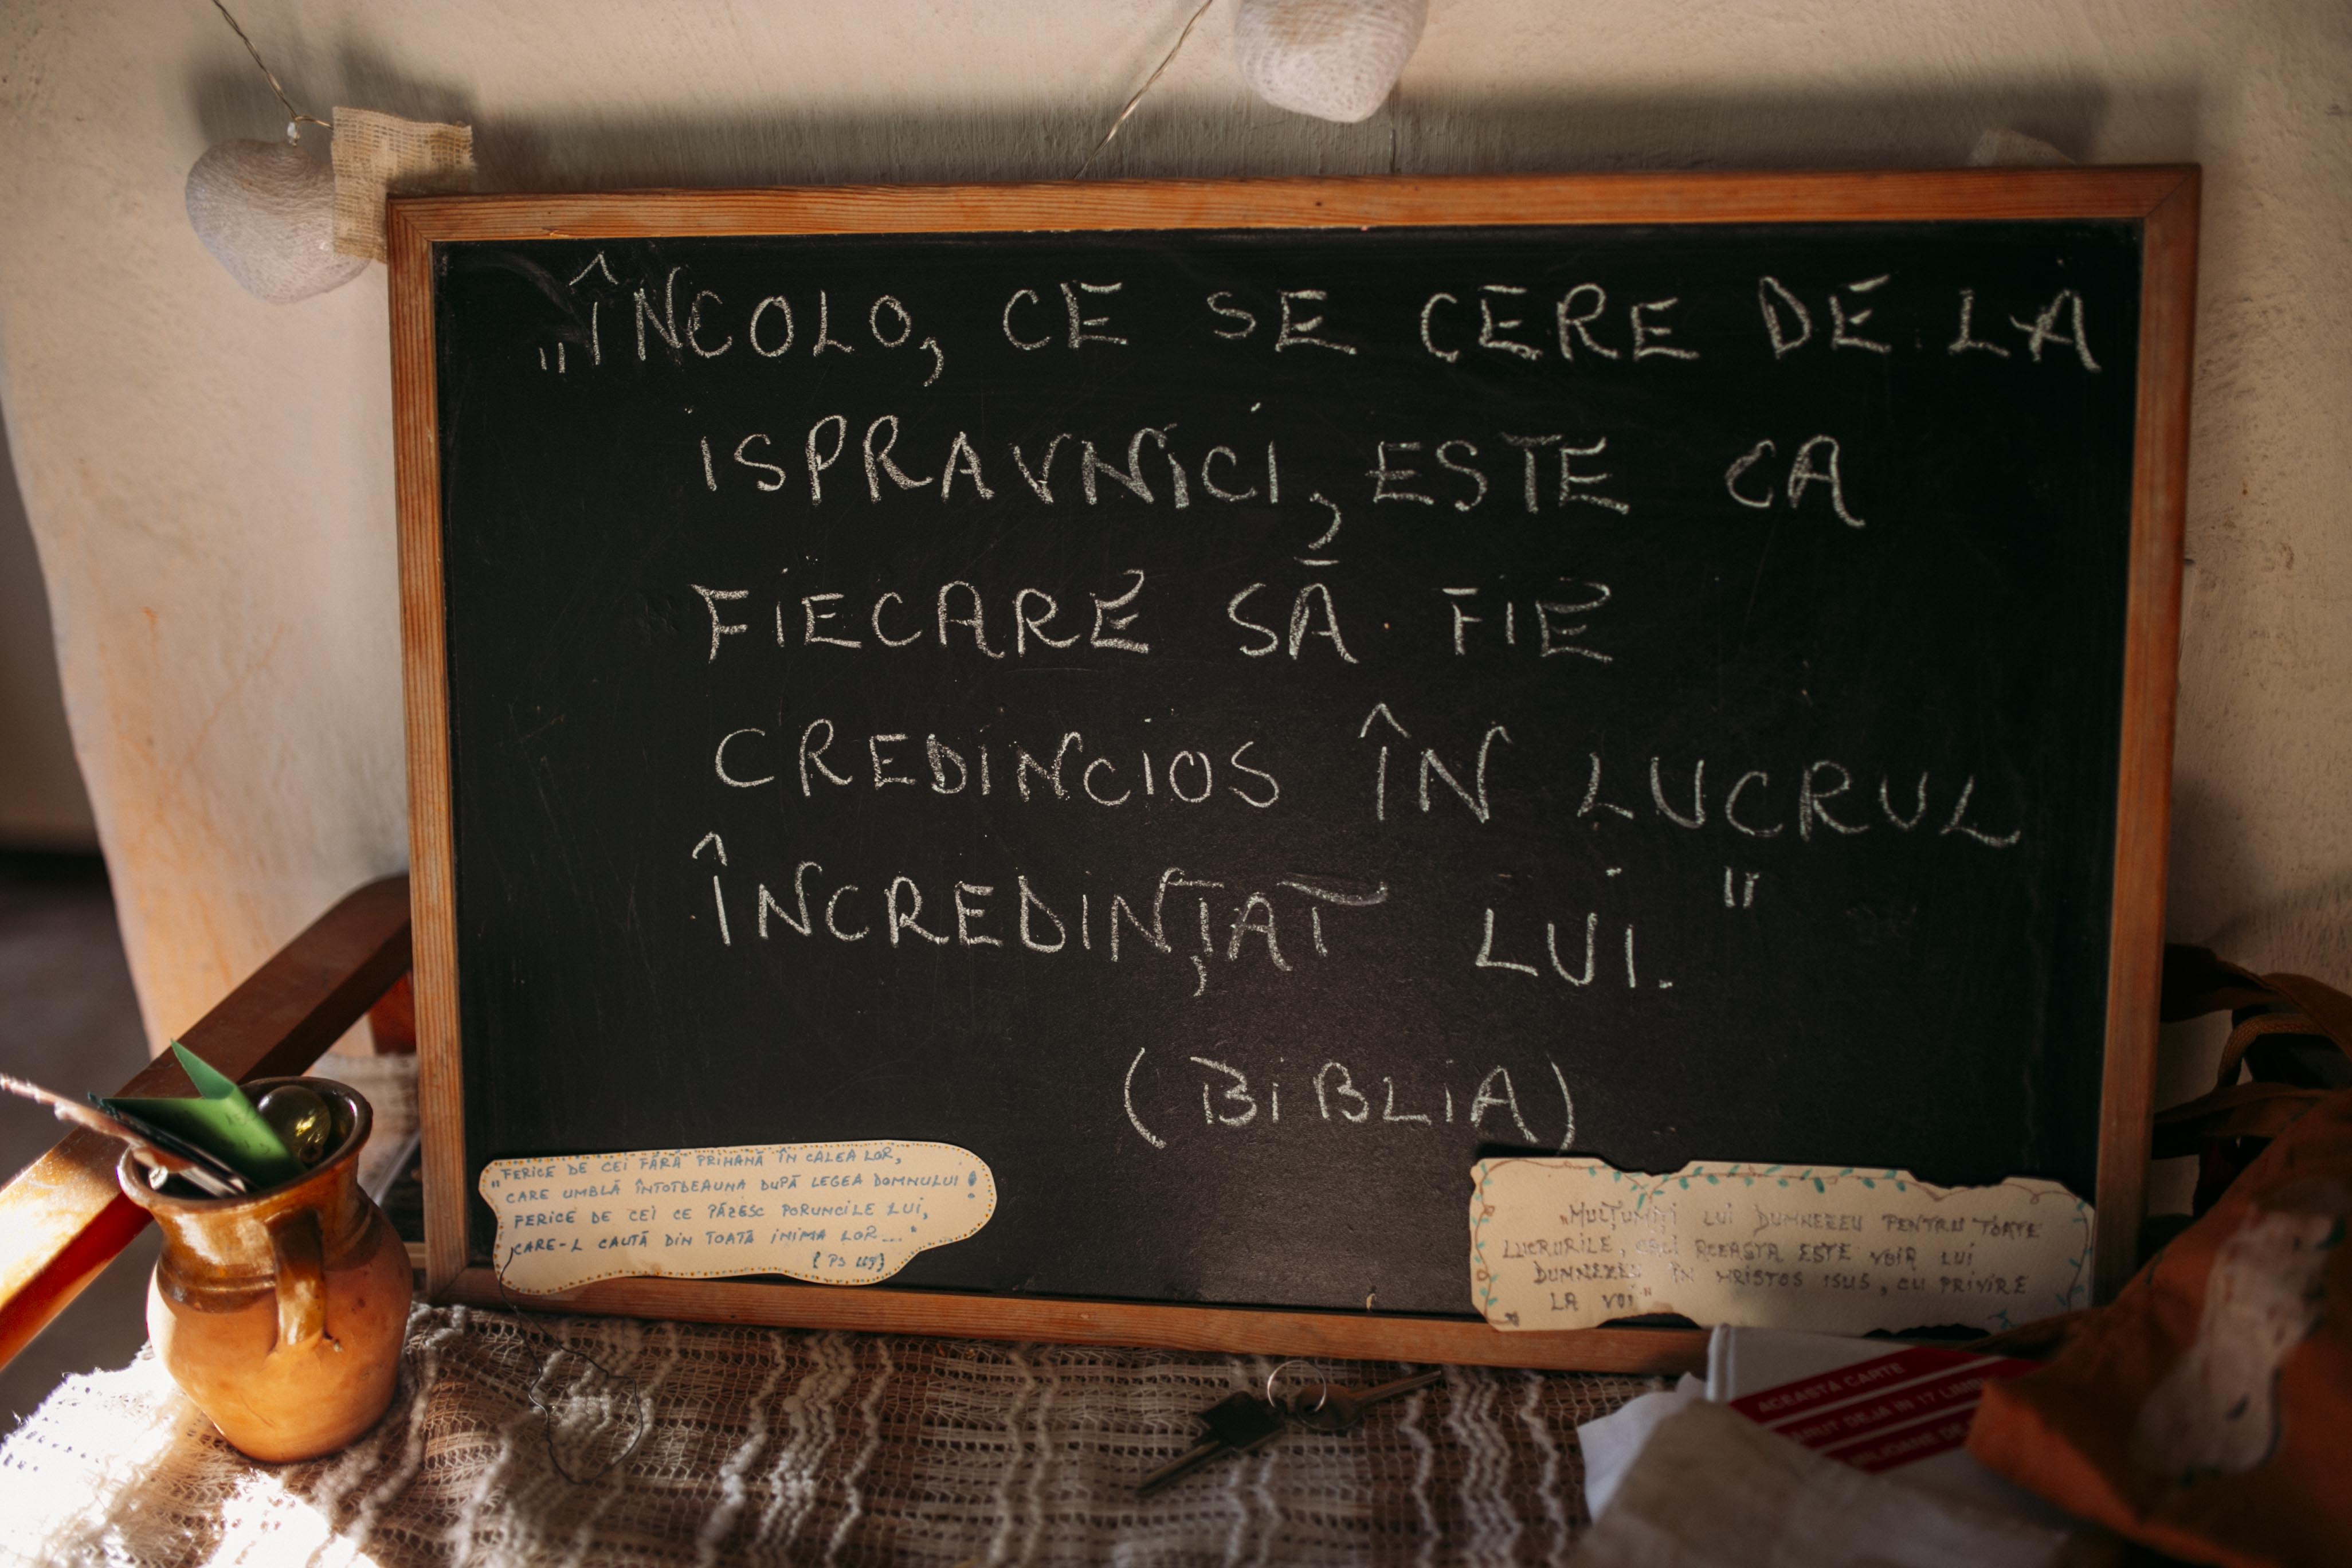 „ÎNCOLO, CE SE CERE DE LA
ISPRAVNICI, ESTE CA
FIECARE SĂ FIE
CREDINCIOS ÎN LUCRUL
ÎNCREDINȚAT LUI."
(BIBLIA)
„FERICE DE CEI FĂRĂ PRIHANĂ ÎN CALEA LOR,
CARE UMBLĂ ÎNTOTDEAUNA DUPĂ LEGEA DOMNULUI!
FERICE DE CEI CE PĂZESC PORUNCILE LUI,
CARE-L CAUTĂ DIN TOATĂ INIMA LOR..."
(PS 119)
„MULȚUMIȚI LUI DUMNEZEU PENTRU TOATE
LUCRURILE, CĂCI ACEASTA ESTE VOIA LUI
DUMNEZEU ÎN HRISTOS ISUS, CU PRIVIRE
LA VOI"
ACEASTA CARTE
DEJA IN 17
DE